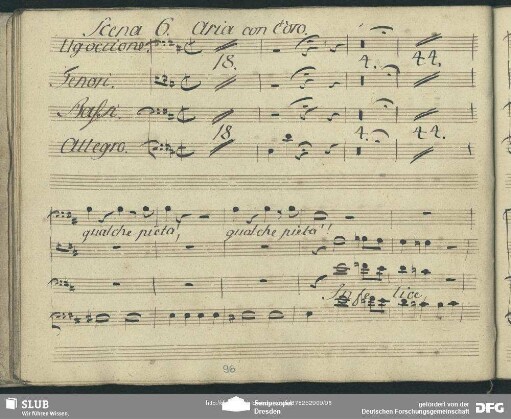 Scena 6. Aria con Coro.
Ugoccione.
18. 4. 44.
Tenori.
Bassi.
18 4. 44.
Allegro.
qualche pieta, qualche pieta!
Infelice,
96
SLUB
Wir führen Wissen.
Dresden
gefördert von der
Deutschen Forschungsgemeinschaft
DFG